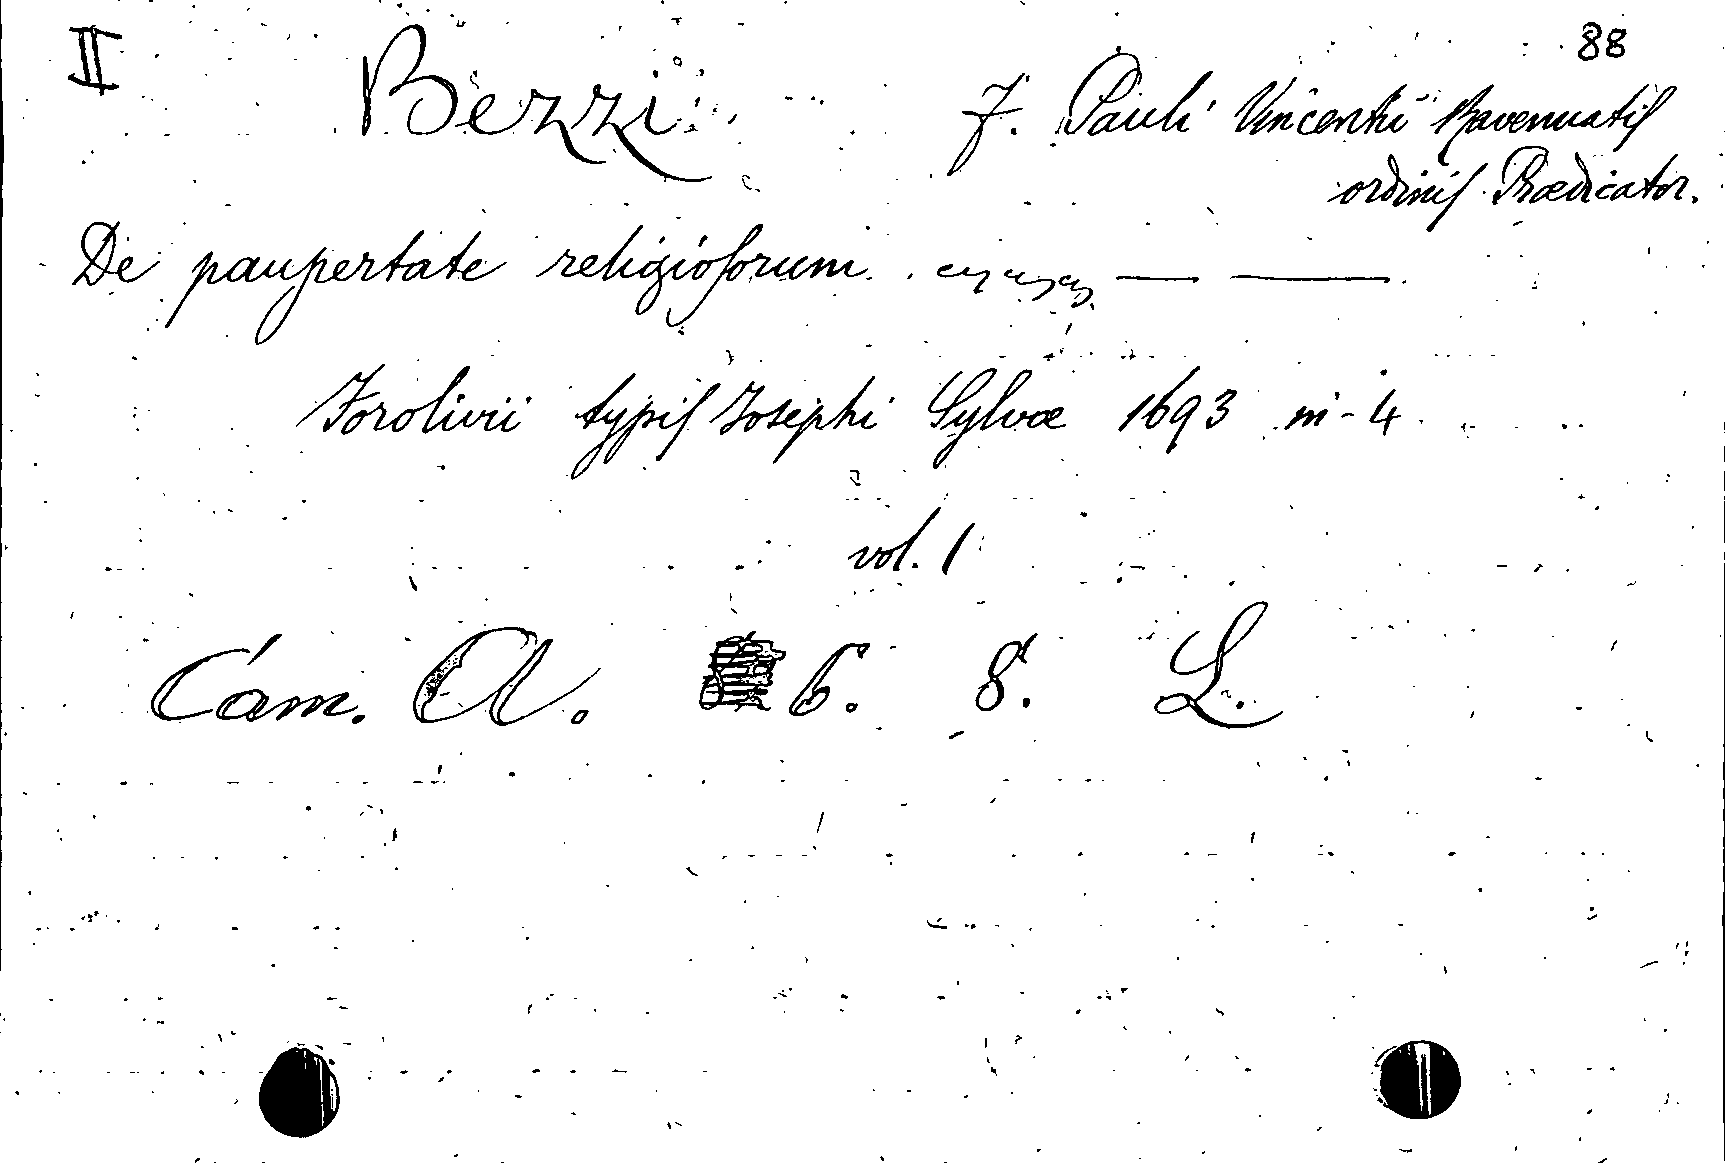 II 88
Bezzi F. Pauli Vincentii Ravennatiſ
ordiniſ Prædicator.
De paupertate religioſorum
Forolivii typiſ Josephi Sylvæ 1693 in-4
vol. 1
Cam. A. 6. 8. L.